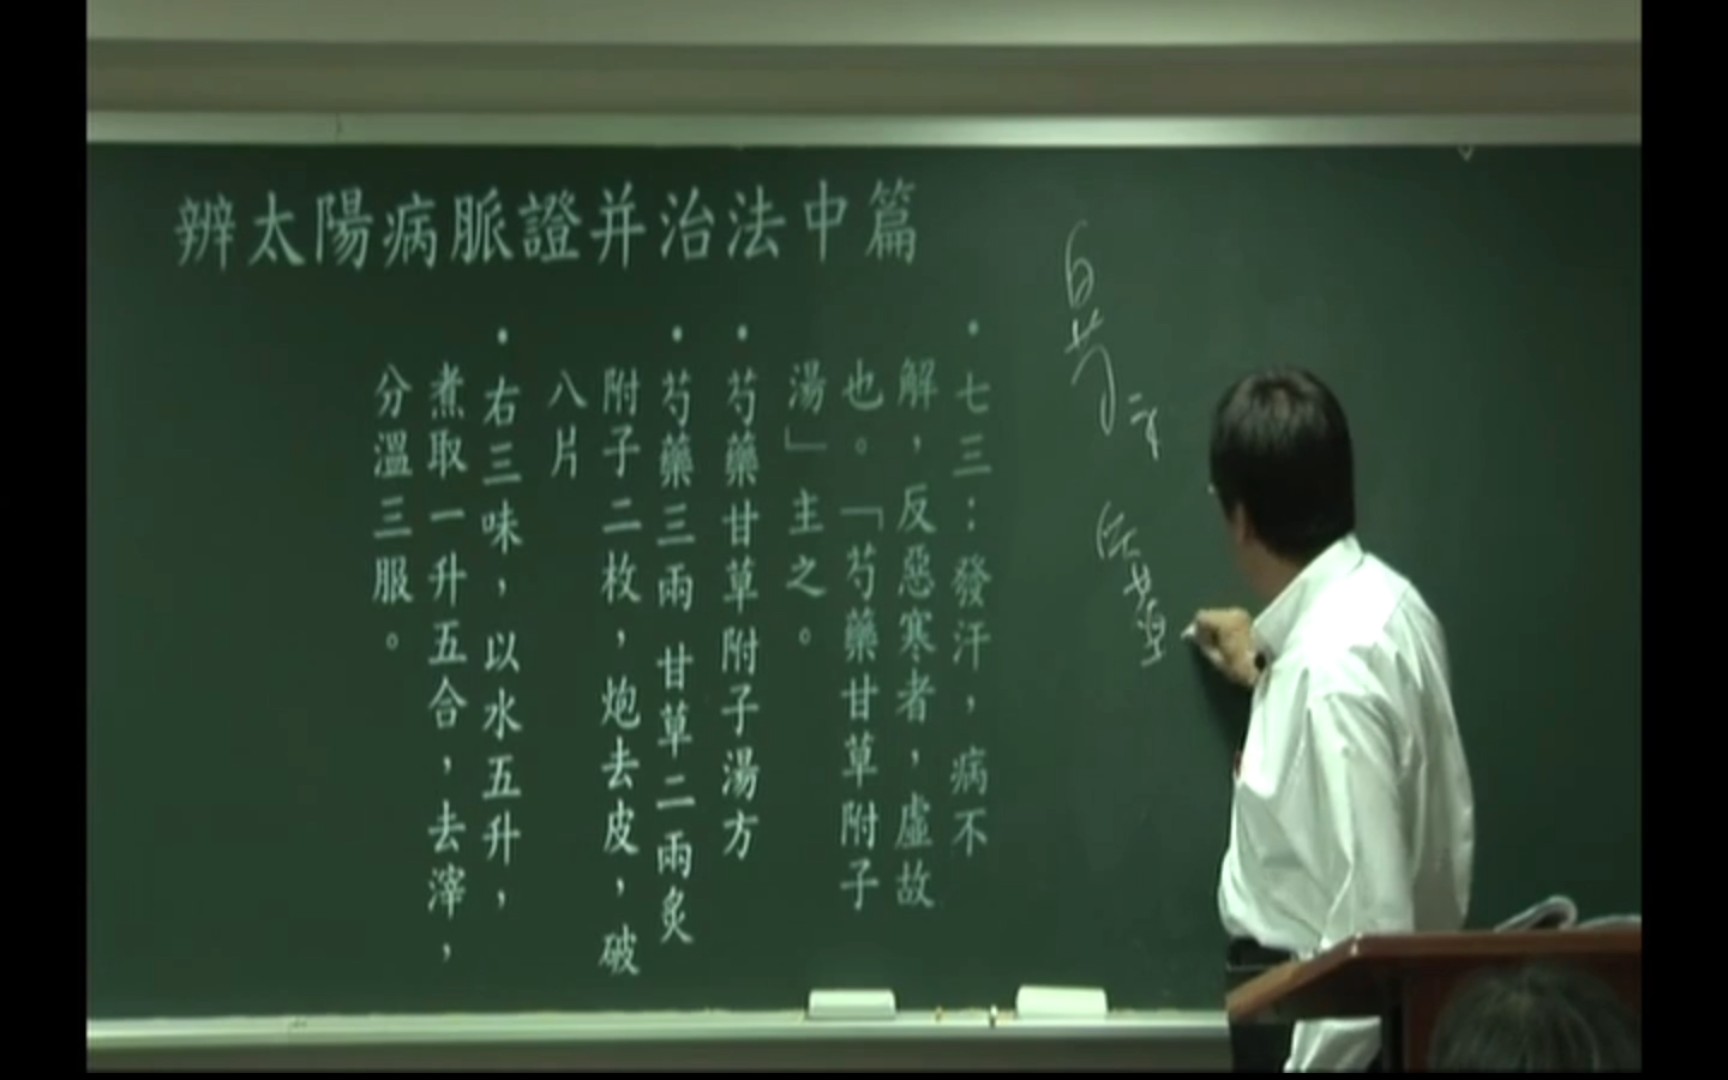 辨太陽病脈證并治法中篇
• 七三：發汗，病不
解，反惡寒者，虛故
也。「芍藥甘草附子
湯」主之。
• 芍藥甘草附子湯方
• 芍藥三兩 甘草二兩炙
附子二枚，炮去皮，破
八片
• 右三味，以水五升，
煮取一升五合，去滓，
分溫三服。
白芍